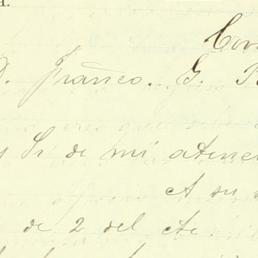 Cor
D. Franco. G. P
y Sr. de mi atenc
A su
de 2 del cte